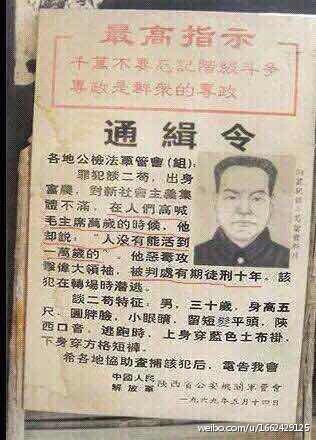 最高指示
千萬不要忘記階級斗争
專政是群衆的專政
通緝令
各地公檢法軍管會(組):
罪犯談二芶,出身
富農,對新社會主義集
體不滿,在人們高喊
毛主席萬歲的時候,他
却説:“人没有能活到
一萬歲的”,他惡毒攻
擊偉大領袖,被判處有期徒刑十年,該
犯在轉場時潜逃。
談二芶特征:男,三十歲,身高五
尺,圓胖臉,小眼睛,留短髮平頭,陝
西口音,逃跑時,上身穿藍色土布褂,
下身穿方格短褲。
希各地協助查捕該犯后,電告我會
中國人民
解放軍 陝西省公安機關軍管會
一九六九年五月十四日
weibo.com/u/1662429125